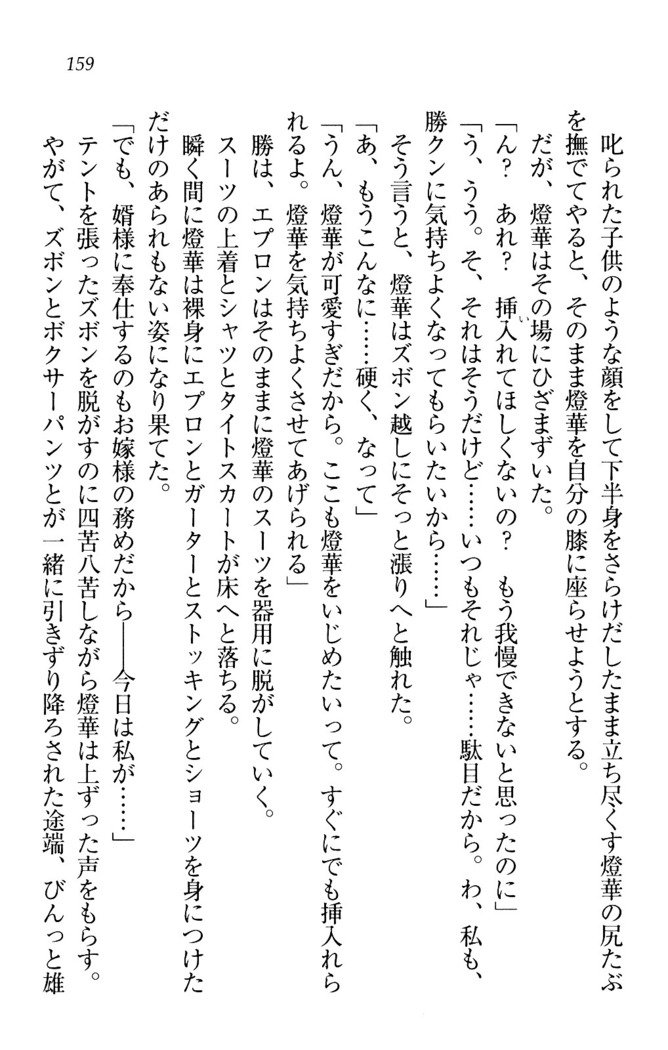 159
叱られた子供のような顔をして下半身をさらけだしたまま立ち尽くす燈華の尻たぶ
を撫でてやると、そのまま燈華を自分の膝に座らせようとする。
だが、燈華はその場にひざまずいた。
「ん？　あれ？　挿入れてほしくないの？　もう我慢できないと思ったのに」
「う、うう。そ、それはそうだけど……いつもそれじゃ……駄目だから。わ、私も、
勝クンに気持ちよくなってもらいたいから……」
そう言うと、燈華はズボン越しにそっと漲りへと触れた。
「あ、もうこんなに……硬く、なって」
「うん、燈華が可愛すぎだから。ここも燈華をいじめたいって。すぐにでも挿入れら
れるよ。燈華を気持ちよくさせてあげられる」
勝は、エプロンはそのままに燈華のスーツを器用に脱がしていく。
スーツの上着とシャツとタイトスカートが床へと落ちる。
瞬く間に燈華は裸身にエプロンとガーターとストッキングとショーツを身につけた
だけのあられもない姿になり果てた。
「でも、婿様に奉仕するのもお嫁様の務めだから――今日は私が……」
テントを張ったズボンを脱がすのに四苦八苦しながら燈華は上ずった声をもらす。
やがて、ズボンとボクサーパンツとが一緒に引きずり降ろされた途端、びんっと雄